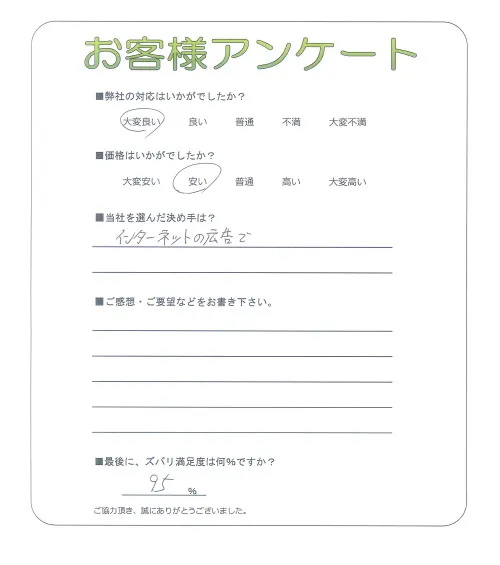 お客様アンケート
■弊社の対応はいかがでしたか？
大変良い 良い 普通 不満 大変不満
■価格はいかがでしたか？
大変安い 安い 普通 高い 大変高い
■当社を選んだ決め手は？
インターネットの広告で
■ご感想・ご要望などをお書き下さい。
■最後に、ズバリ満足度は何%ですか？
95 %
ご協力頂き、誠にありがとうございました。